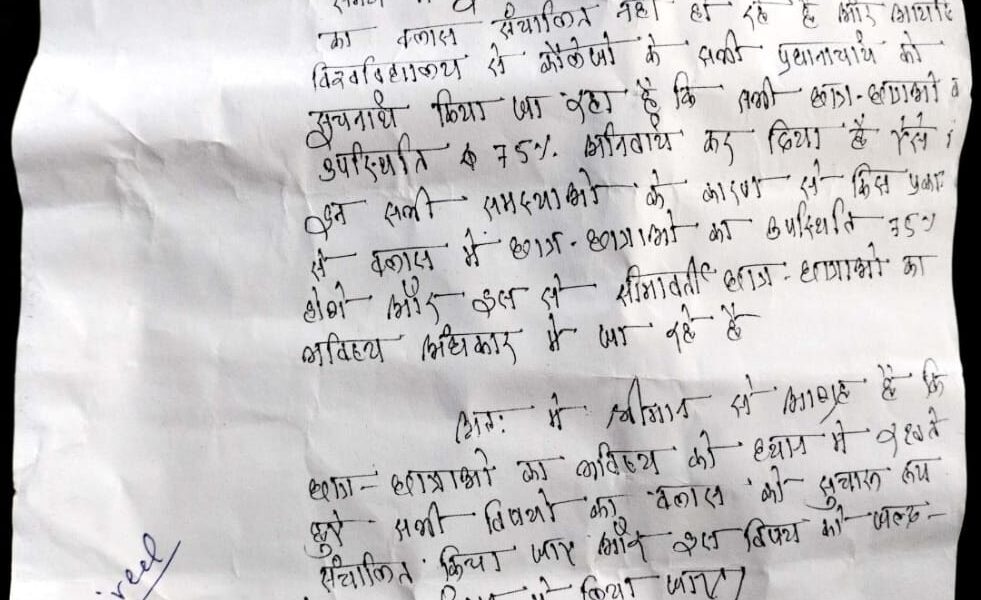 का क्लास संचालित नहीं हो रहे है और
विश्वविद्यालय से कॉलेजो के सभी प्रधानाचार्य को
सुचनार्थ किया जा रहा है कि सभी छात्र-छात्राओ
उपस्थिति 75% अनिवार्य कर दिया है ऐसे
इन सभी समस्याओ के कारण से किस प्रकार
से क्लास में छात्र-छात्राओ का उपस्थिति 75%
होगे और इस से सीमावर्ती छात्र-छात्राओ का
भविष्य अंधकार मे जा रहे है
अतः मे श्रीमान से आग्रह है कि
छात्र-छात्राओ का भविष्य को ध्यान मे रखते
हुऐ सभी विषयो का क्लास को सुचारू रूप
संचालित किया जाए और इस विषय को जल्द-
किया जाए।